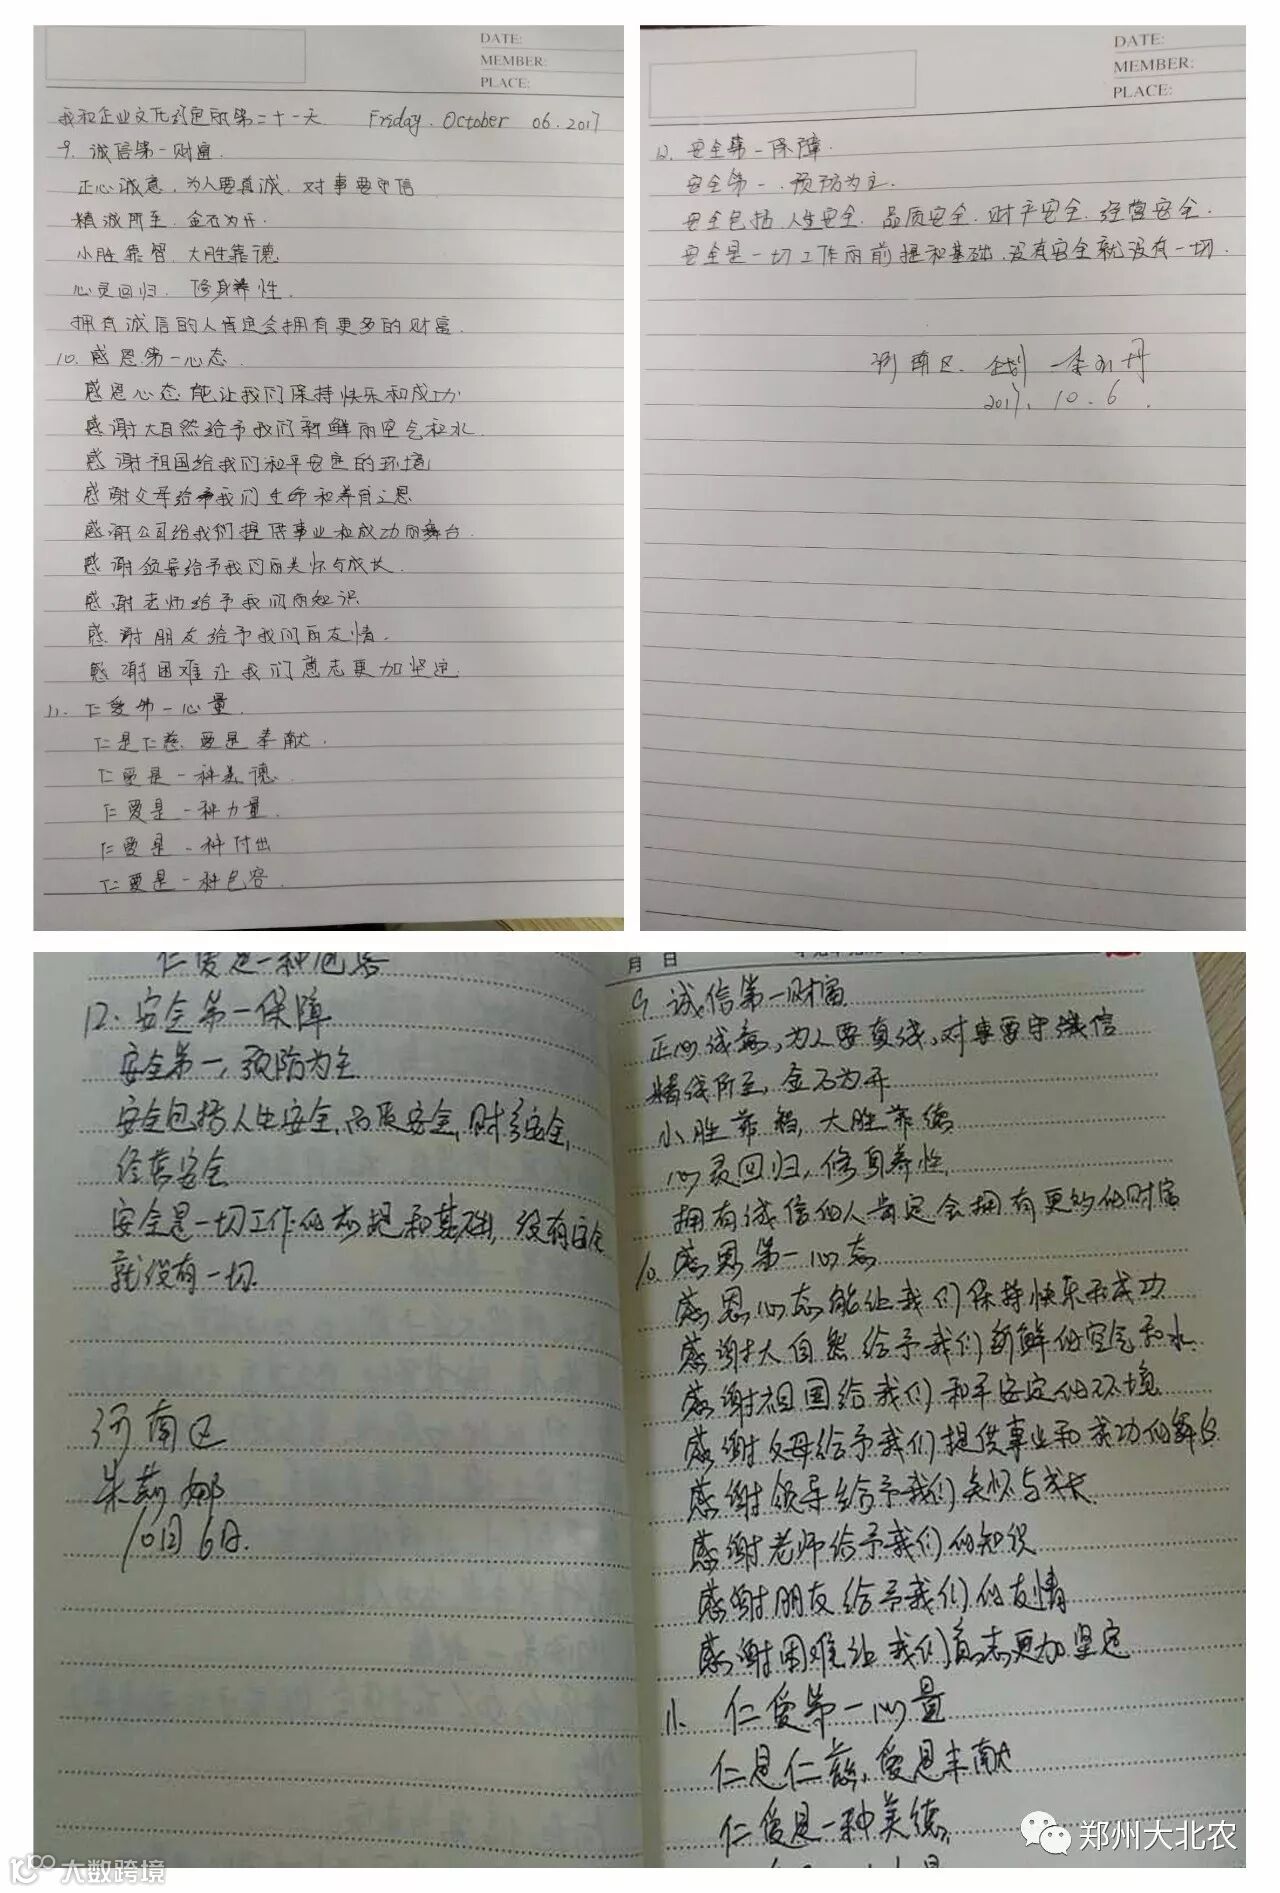 DATE:
MEMBER:
PLACE:
我和企业文化约定的第二十一天 Friday. October 06.2017
9. 诚信第一财富
正心诚意，为人要真诚，对事要守信
精诚所至，金石为开
小胜靠智，大胜靠德
心灵回归，修身养性.
拥有诚信的人肯定会拥有更多的财富.
10. 感恩第一心态.
感恩心态能让我们保持快乐和成功
感谢大自然给予我们新鲜的空气和水.
感谢祖国给我们和平安定的环境
感谢父母给予我们生命和养育之恩
感谢公司给我们提供事业和成功的舞台.
感谢领导给予我们的关怀与成长.
感谢老师给予我们的知识
感谢朋友给予我们的友情.
感谢困难让我们意志更加坚定
11. 仁爱第一心量.
仁是仁慈，爱是奉献.
仁爱是一种美德.
仁爱是一种力量.
仁爱是一种付出
仁爱是一种包容.
DATE:
MEMBER:
PLACE:
12. 安全第一保障.
安全第一，预防为主.
安全包括人生安全.品质安全.财产安全.经营安全.
安全是一切工作的前提和基础，没有安全就没有一切.
河南区. 企划
2017.10.6.
仁爱是一种包容
12. 安全第一保障
安全第一，预防为主
安全包括人生安全，品质安全，财产安全，
经营安全
安全是一切工作的前提和基础，没有安全
就没有一切.
河南区
朱莉娜
10月6日.
月 日
9. 诚信第一财富
正心诚意，为人要真诚，对事要守信
精诚所至，金石为开
小胜靠智，大胜靠德
心灵回归，修身养性，
拥有诚信的人肯定会拥有更多的财富
10. 感恩第一心态
感恩心态能让我们保持快乐和成功
感谢大自然给予我们新鲜的空气和水
感谢祖国给我们和平安定的环境
感谢父母给予我们提供事业和成功的舞台
感谢领导给予我们关怀与成长
感谢老师给予我们的知识
感谢朋友给予我们的友情
感谢困难让我们意志更加坚定
11. 仁爱第一心量
仁是仁慈，爱是奉献
仁爱是一种美德，
郑州大北农
大数跨境